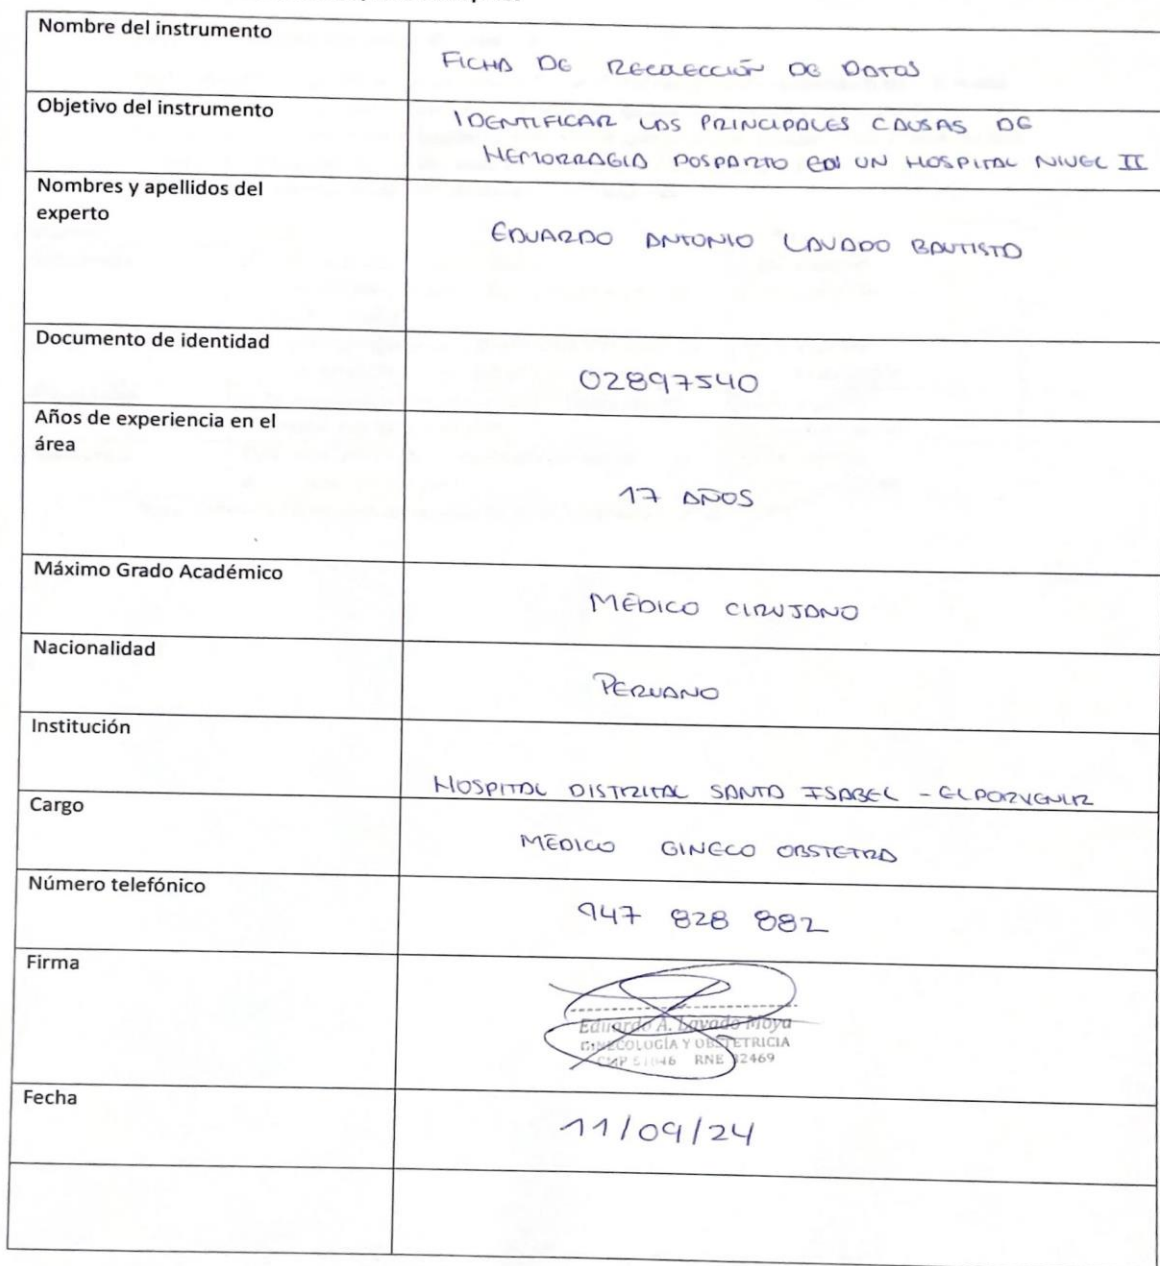 Nombre del instrumento
FICHA DE RECOLECCIÓN DE DATOS
Objetivo del instrumento
IDENTIFICAR LAS PRINCIPALES CAUSAS DE
HEMORRAGIA POSPARTO EN UN HOSPITAL NIVEL II
Nombres y apellidos del
experto
EDUARDO ANTONIO LAVADO BAUTISTA
Documento de identidad
02897540
Años de experiencia en el
área
17 AÑOS
Máximo Grado Académico
MÉDICO CIRUJANO
Nacionalidad
PERUANO
Institución
HOSPITAL DISTRITAL SANTA ISABEL - EL PORVENIR
Cargo
MÉDICO GINECO OBSTETRA
Número telefónico
947 828 882
Firma
Eduardo A. Lavado Moya
GINECOLOGÍA Y OBSTETRICIA
CMP RNE
Fecha
11/09/24